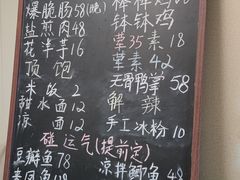 爆脆肠58(晚)
盐煎肉48
花芋芋16
顶饱
米饭2
甜水面12
凉面12
钵钵鸡
荤35素18
荤素42
无骨鸭掌58
解辣
手工冰粉10
碰运气(提前定)
豆瓣鱼78
凉拌鲫鱼48